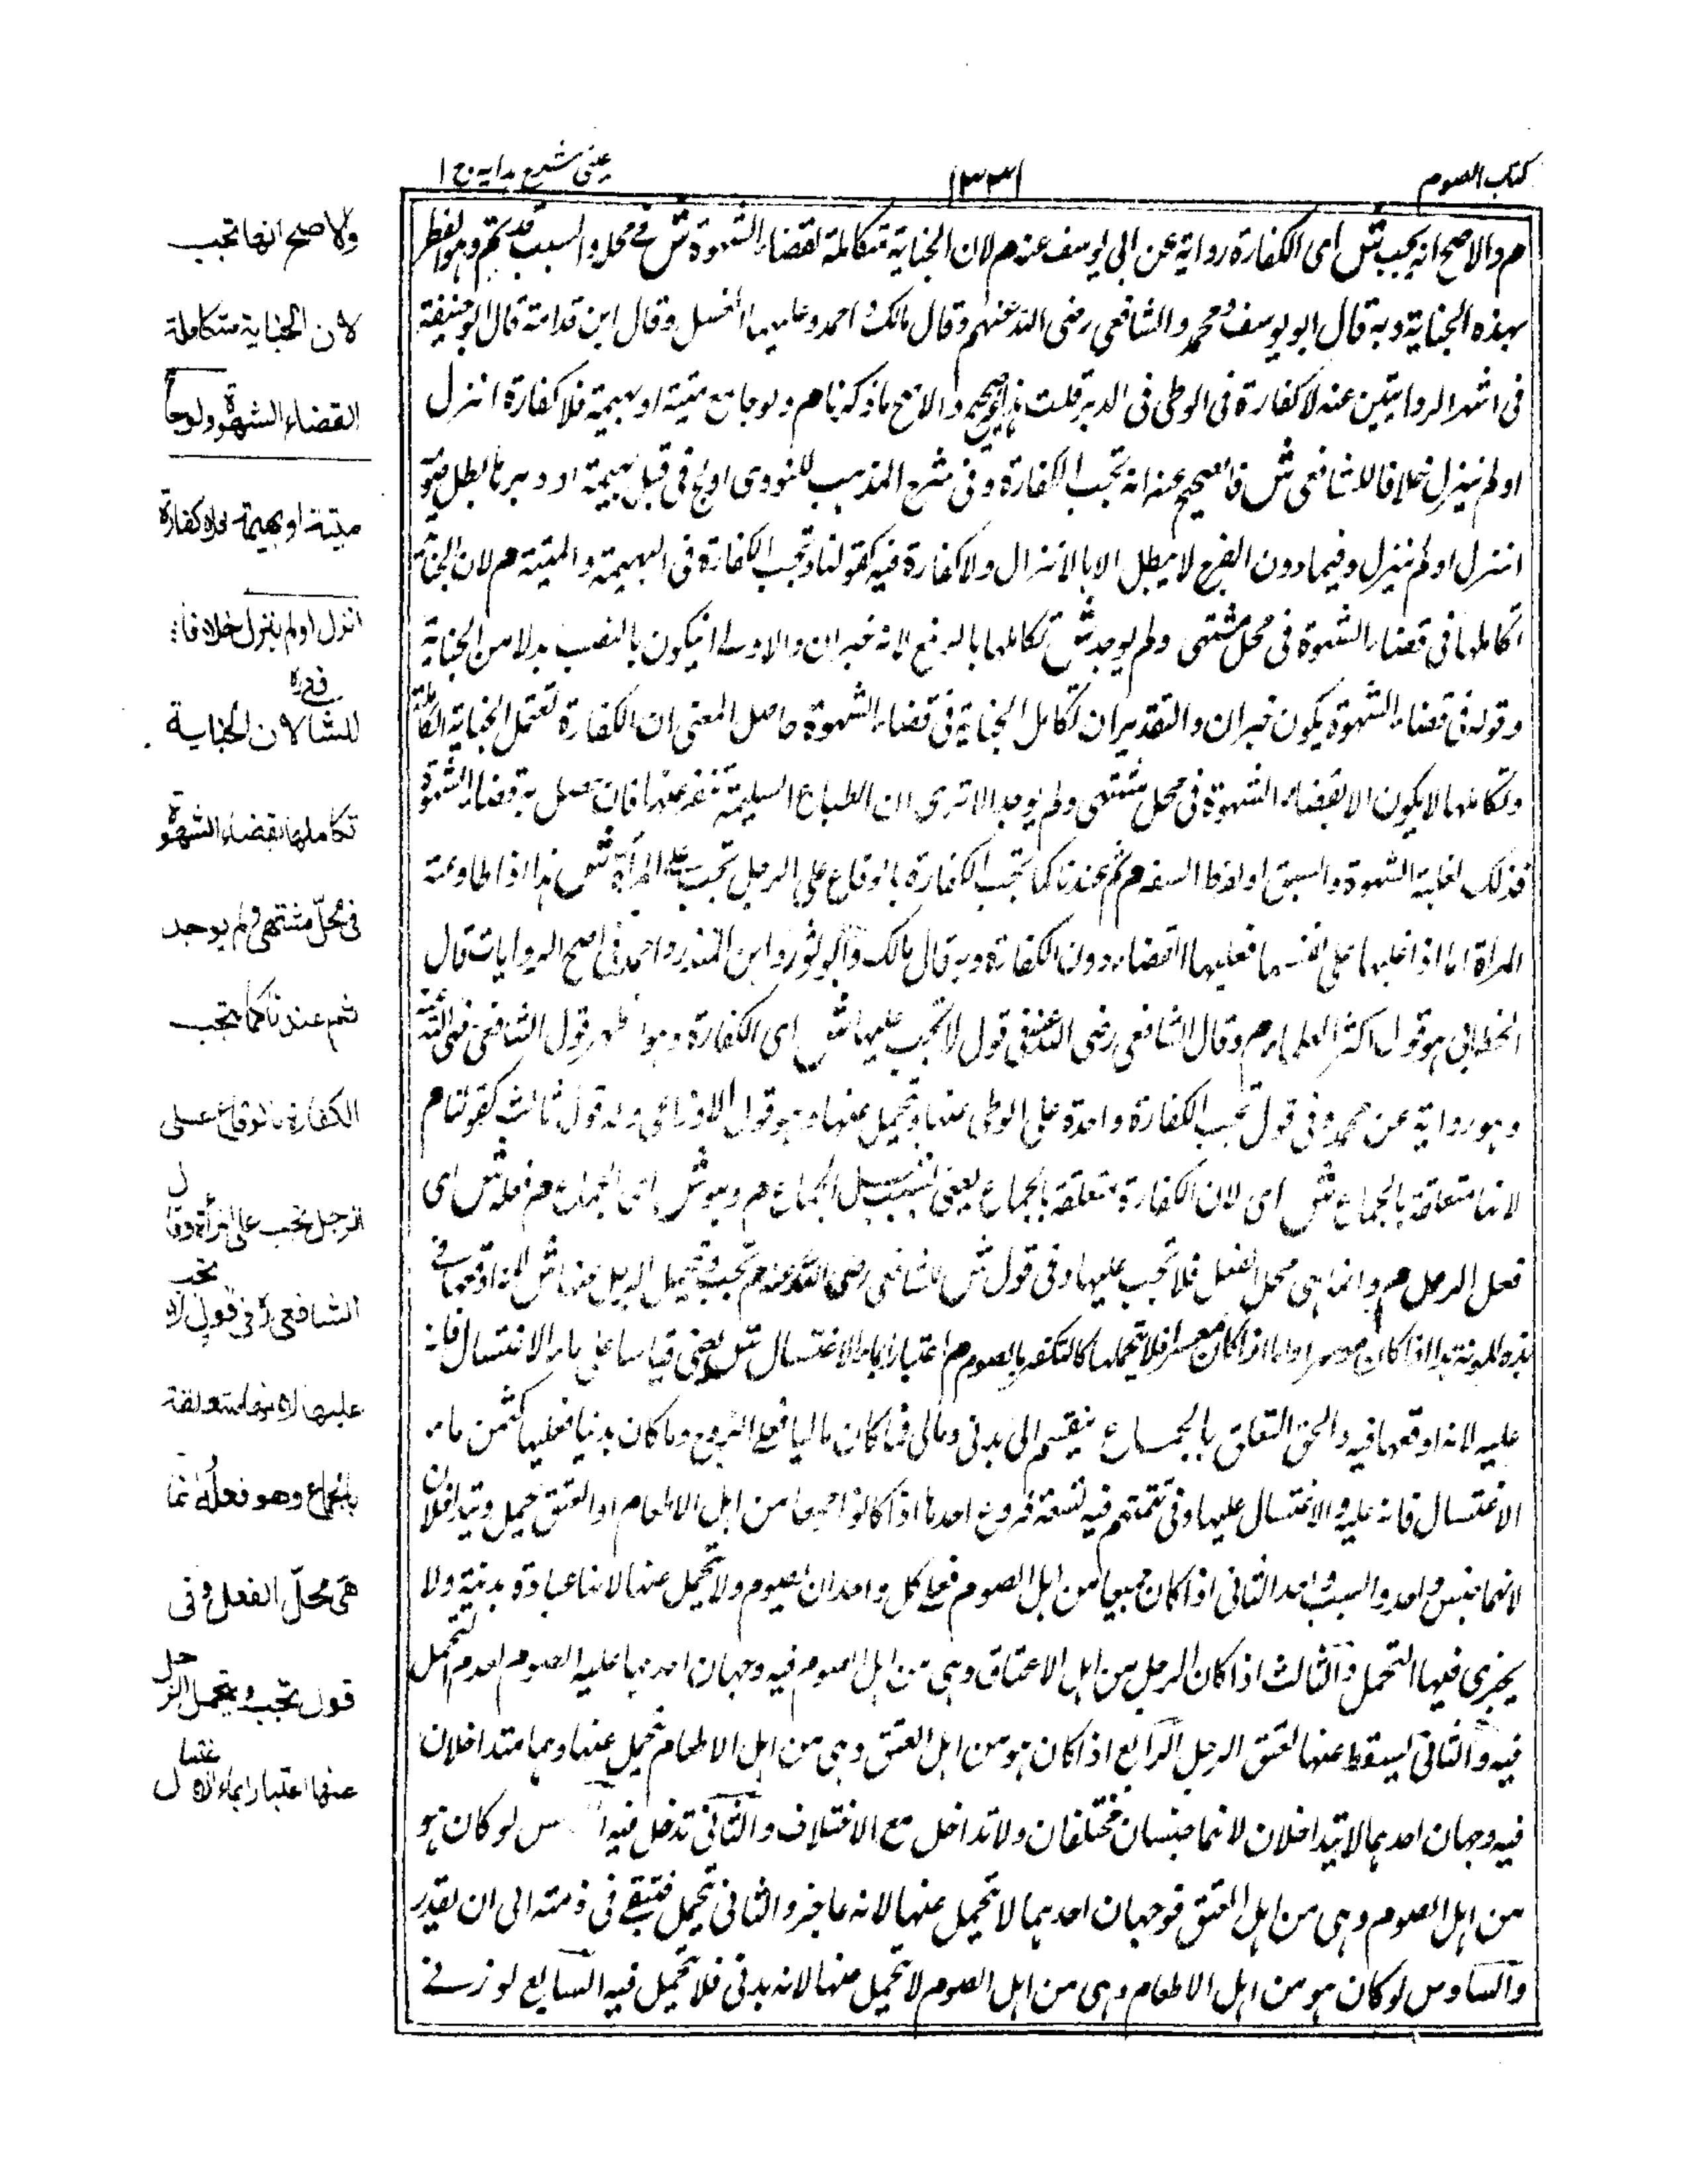 كتاب الصوم
١٣٣١
عينى شرح هدايه ج ١
م والاصح انه يجب ش اى الكفارة رواية عن ابى يوسف عنه م لان الجناية متكاملة لقضاء الشهوة ش فى محل والسبب قد تم وهو الفطر
بهذه الجناية وبه قال ابو يوسف ومحمد والشافعى رضى الله عنهم وقال مالك واحمد وعليهما الغسل وقال ابن قدامة قال ابو حنيفة
فى اشهر الروايتين عنه لا كفارة فى الوطى فى الدبر قلت هذا صحيح والاصح ما ذكرنا م ولو جامع ميتة او بهيمة فلا كفارة انزل
او لم ينزل خلافا للشافعى ش فالصحيح عنه انه تجب الكفارة وفى شرح المذهب للنووى اولج فى قبل بهيمة او دبرها بطل صومه
انزل او لم ينزل وفيما دون الفرج لا يبطل الا بالانزال ولا كفارة فيه كقولنا وتجب الكفارة فى البهيمة والميتة م لان الجناية
تكاملها فى قضاء الشهوة فى محل مشتهى ولم يوجد ش تكاملها بالرفع لانه خبر ان والاولى ان يكون بالنصب بدلا من الجناية
وقوله فى قضاء الشهوة يكون خبر ان والتقدير ان تكامل الجناية فى قضاء الشهوة حاصل المعنى ان الكفارة تعتمل الجناية الكاملة
وتكاملها لا يكون الا بقضاء الشهوة فى محل مشتهى ولم يوجد الا ترى ان الطباع السليمة تنفر عنها فان حصل به قضاء الشهوة
فذلك لغلبة الشهوة والسبق او لفرط السفه م ثم عندنا كما تجب الكفارة بالوقاع على الرجل تجب على المرأة ش هذا اذا طاوعته
المرأة اما اذا غلبها على نفسها فعليها القضاء دون الكفارة وبه قال مالك وابو ثور وابن المنذر واحمد فى اصح الروايات قال
الخطابى هو قول اكثر العلماء م وقال الشافعى رضى الله عنه فى قول لا تجب عليها ش اى الكفارة وهو اظهر قول الشافعى رضى الله عنه
وهو رواية عن محمد وفى قول تجب الكفارة واحدة على الوطى عنها وتحمل عنها وهو قول الاوزاعى وله قول ثالث كقولنا م
لانها متعلقة بالجماع ش اى لان الكفارة متعلقة بالجماع يعنى بسبب الجماع م وهو ش اى الجماع م فعله ش اى
فعل الرجل م وانما هى محل الفعل فلا تجب عليها وفى قول ش للشافعى رضى الله عنه م تجب ويتحمل الرجل عنها ش لانه اوقعها فى
هذه المونة هذا اذا كان موسرا واما اذا كان معسرا فلا يتحملها كالتكفير بالصوم م اعتبارا بماء الاغتسال ش يعنى قياسا على ماء الاغتسال فانه
عليه لانه اوقعها فيه والحق المتعلق بالجماع ينقسم الى بدنى ومالى فما كان ماليا فعلى الزوج وما كان بدنيا فعليها كثمن ماء
الاغتسال فانه عليه والاغتسال عليها وفى تتمتهم فيه تسعة فروع احدها اذا كانوا جميعا من اهل الاطعام او العتق تحمل ويتداخلان
لانهما جنس واحد والسبب واحد الثانى اذا كان جميعا من اهل الصوم فعلى كل واحد ان يصوم ولا تحمل عنها لانها عبادة بدنية ولا
يجزى فيها التحمل والثالث اذا كان الرجل من اهل الاعتاق وهى من اهل الصوم فيه وجهان احدهما عليه الصوم لعدم التحمل
فيه والثانى يسقط عنها لعتق الرجل الرابع اذا كان هو من اهل العتق وهى من اهل الاطعام تحمل عنها وهما متداخلان
فيه وجهان احدهما لا يتداخلان لانهما جنسان مختلفان ولا تداخل مع الاختلاف والثانى تدخل فيه الخامس لو كان هو
من اهل الصوم وهى من اهل العتق فوجهان احدهما لا تحمل عنها لانه عاجز والثانى تحمل فتبقى فى ذمته الى ان يقدر
والسادس لو كان هو من اهل الاطعام وهى من اهل الصوم لا تحمل عنها لانه بدنى فلا تحمل فيه السابع لو زنى
ولاصح انها تجب
لان الجناية متكاملة
القضاء الشهوة ولو جا
ميتة او بهيمة فلا كفارة
انزل او لم ينزل خلافا
للشافعى لان الجناية
تكاملها بقضاء الشهوة
فى محل مشتهى ولم يوجد
ثم عندنا كما تجب
الكفارة بالوقاع على
الرجل تجب على المرأة وقال
الشافعى فى قول لا تجب
عليها لانها متعلقة
بالجماع وهو فعله انما
هى محل الفعل وفى
قول تجب ويتحمل الرجل
عنها اعتبارا بماء الاغتسال